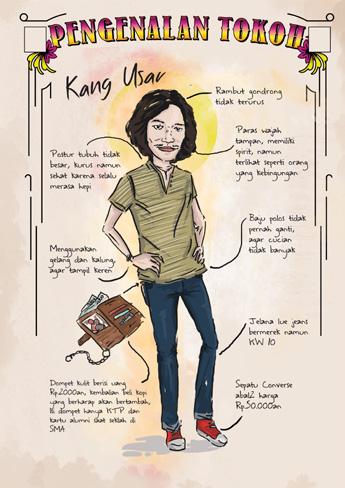 PENGENALAN TOKOH
Kang Usar
Rambut gondrong
tidak terurus
Paras wajah
tampan, memiliki
spirit, namun
terlihat seperti orang
yang kebingungan
Postur tubuh tidak
besar, kurus namun
sehat karena selalu
merasa hepi
Baju polos tidak
pernah ganti,
agar cucian
tidak banyak
Menggunakan
gelang dan kalung,
agar tampil keren
Jelana lue jeans
bermerek namun
KW 10
Dompet kulit berisi uang
Rp.2000,an, kembalian beli kopi
yang berharap akan bertambah,
isi dompet hanya KTP dan
kartu alumni saat seklah di
SMA
Sepatu Converse
abal2 harga
Rp.50.000an